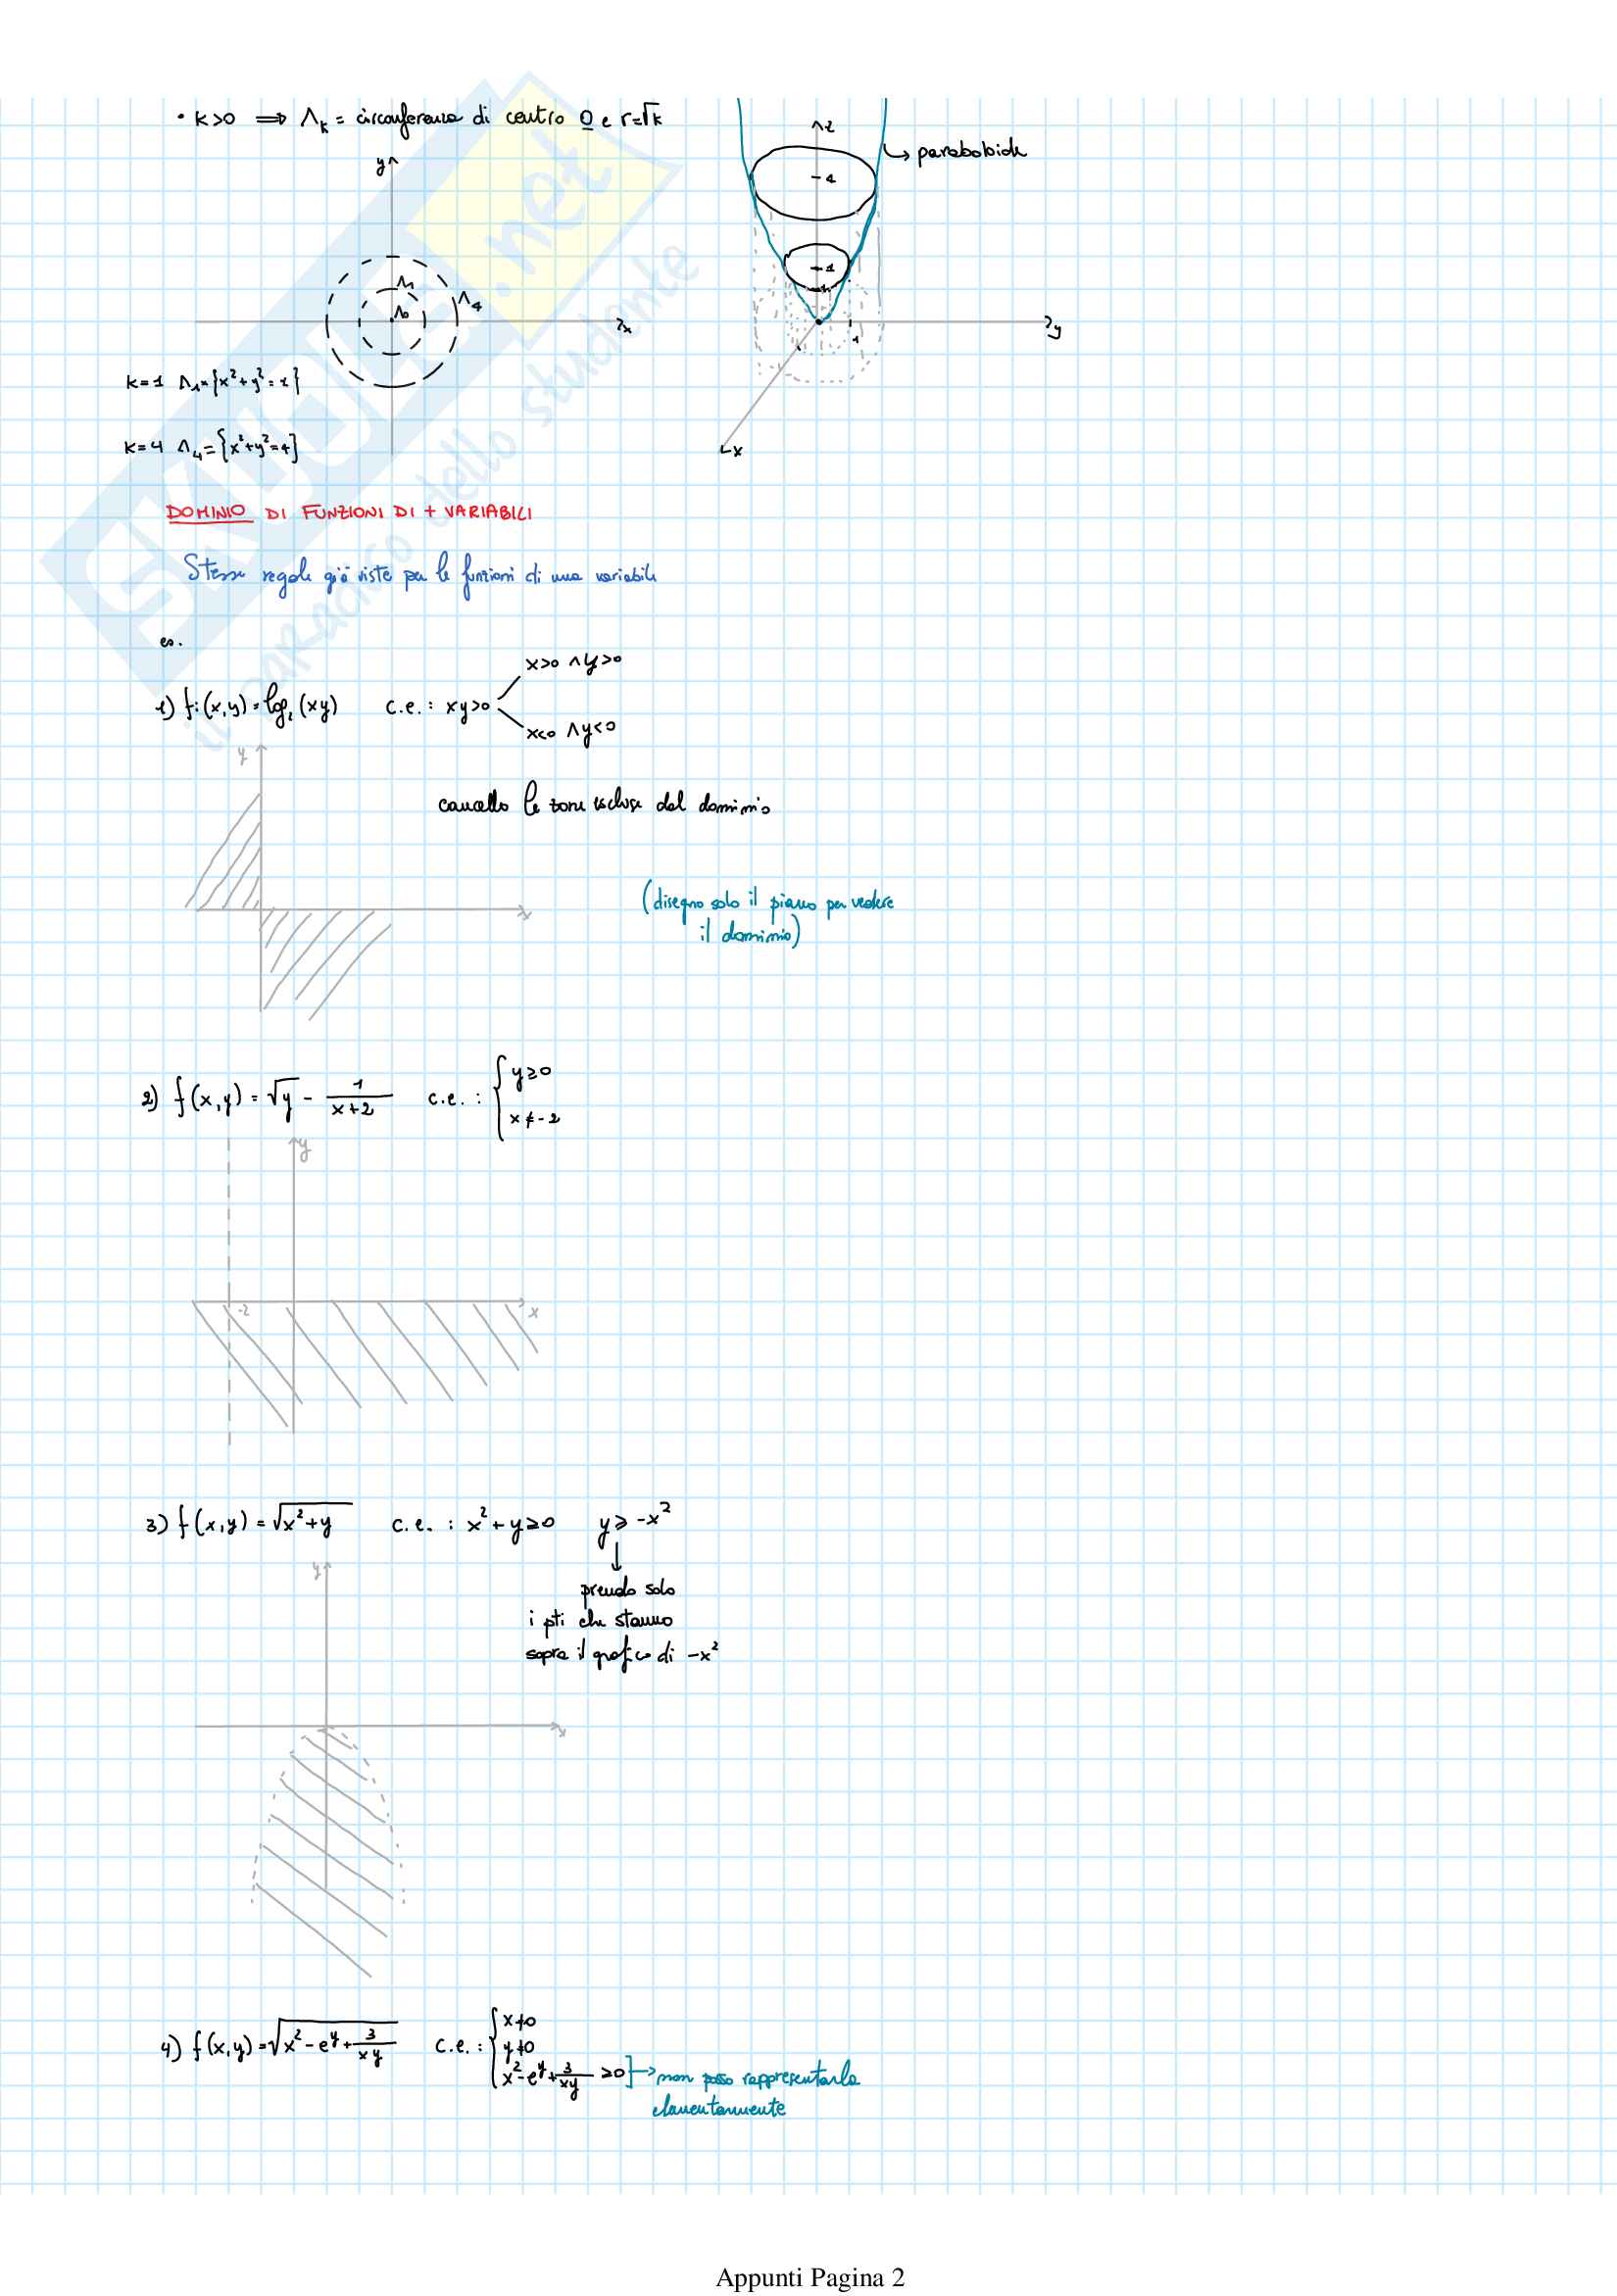 • k>0 ⟹ Λₖ = circonferenza di centro O e r=√k
y
x
Λ₁
Λ₀
Λ₄
z
paraboloide
4
1
y
1
x
k=1 Λ₁={x²+y²=1}
k=4 Λ₄={x²+y²=4}
DOMINIO DI FUNZIONI DI + VARIABILI
Stesse regole già viste per le funzioni di una variabile
es.
1) f:(x,y)=log₂(xy) c.e.: xy>0
x>0 ∧ y>0
x<0 ∧ y<0
y
x
cancello le zone escluse dal dominio
(disegno solo il piano per vedere
il dominio)
2) f(x,y)=√y - 1/(x+2) c.e.: { y≥0
x≠-2
y
-2
x
3) f(x,y)=√(x²+y) c.e.: x²+y≥0 y≥-x²
↓
prendo solo
i pti che stanno
sopra il grafico di -x²
y
x
4) f(x,y)=√(x²-e^y+3/(xy)) c.e.: { x≠0
y≠0
x²-e^y+3/(xy) ≥0 ] → non posso rappresentarla
elementarmente
SKUOLA.net
il paradiso dello studente
Appunti Pagina 2